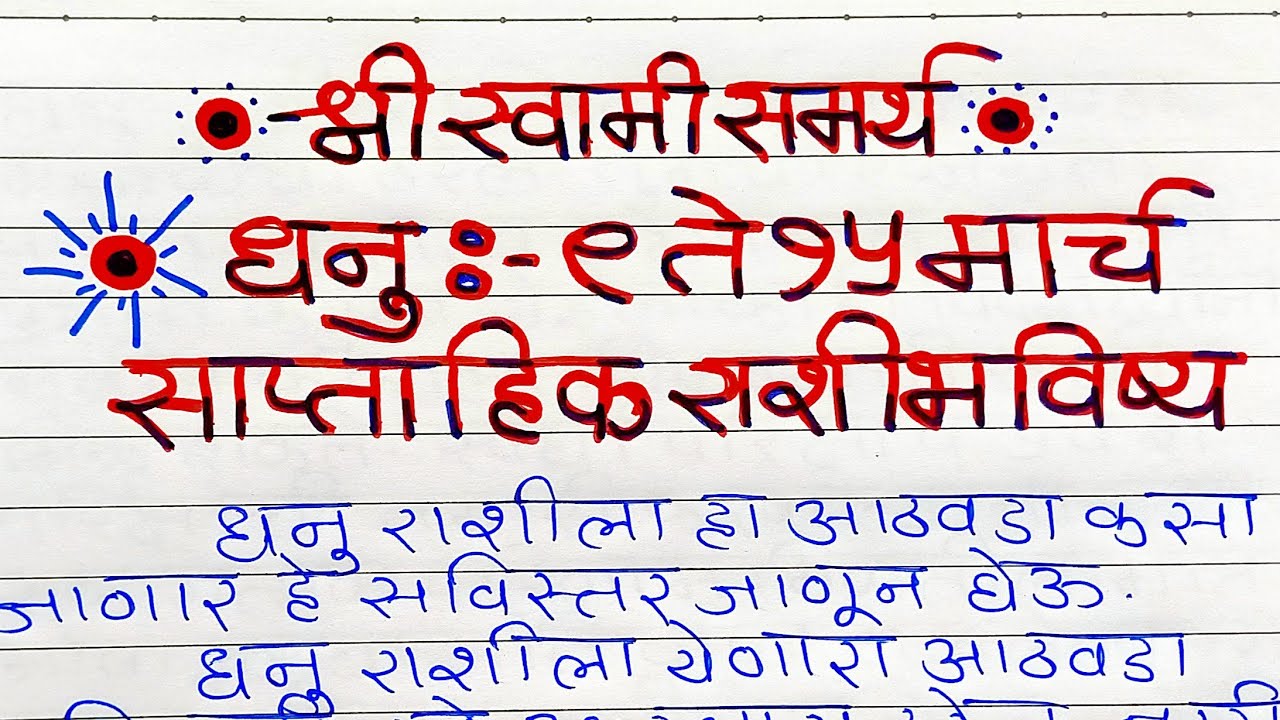 श्री स्वामी समर्थ
धनु :- ९ ते १५ मार्च
साप्ताहिक राशीभविष्य
धनु राशीला हा आठवडा कसा
जाणार हे सविस्तर जाणून घेऊ.
धनु राशीला येणारा आठवडा